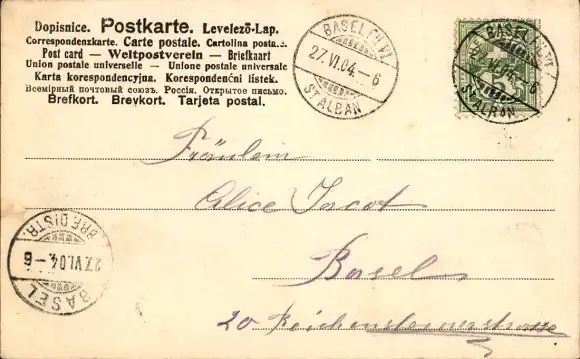 Dopisnice. Postkarte. Levelező-Lap.
Correspondenzkarte. Carte postale. Cartolina posta..
Post card — Weltpostverein — Briefkaart
Union postale universelle — Unione postale universale
Karta korespondencyjna. Korespondenční lístek.
Всемірный почтовый союзъ. Россія. Открытое письмо.
Brefkort. Brevkort. Tarjeta postal.
BASEL
27.VI.04.–6
ST ALBAN
BASEL
VI.04.–6
ST ALBAN
Fräulein
Alice Jacot
Basel
20 Reichensteinerstrasse
BRF. DISTR.
27.VI.04.–6
BASEL